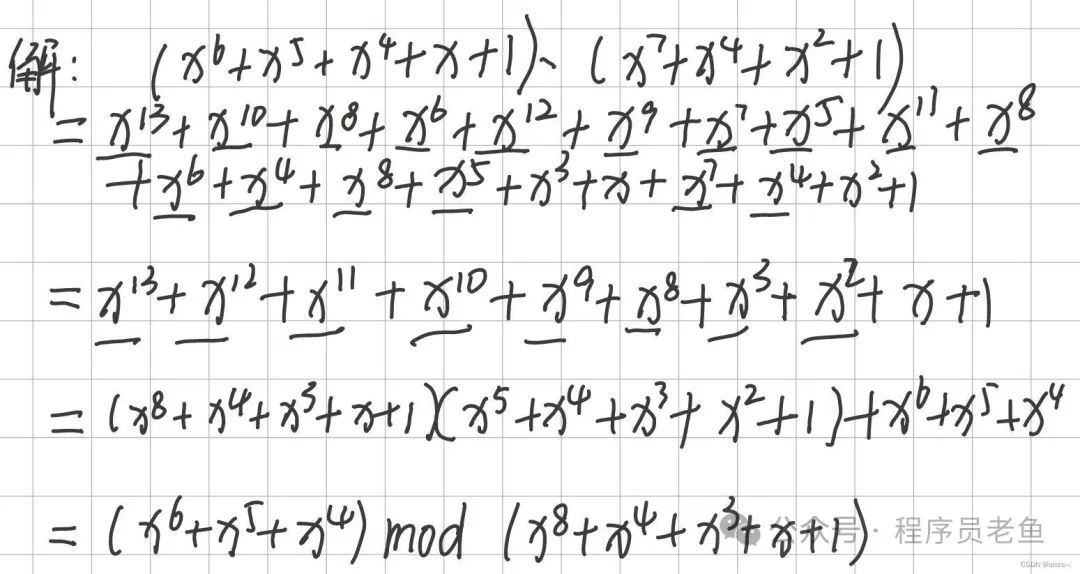 解: (x⁶+x⁵+x⁴+x+1)、(x⁷+x⁴+x²+1)
= x¹³+x¹⁰+x⁸+x⁶+x¹²+x⁹+x⁷+x⁵+x¹¹+x⁸
+x⁶+x⁴+x⁸+x⁵+x³+x+x⁷+x⁴+x²+1
= x¹³+x¹²+x¹¹+x¹⁰+x⁹+x⁸+x³+x²+x+1
= (x⁸+x⁴+x³+x+1)(x⁵+x⁴+x³+x²+1)+x⁶+x⁵+x⁴
= (x⁶+x⁵+x⁴) mod (x⁸+x⁴+x³+x+1)
公众号 · 程序员老鱼
CSDN @ones~